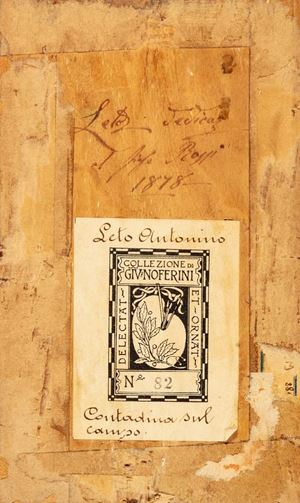 Leto dedica
1878
Leto Antonino
COLLEZIONE DI
GIV. NOFERINI
DELECTAT
ET ORNAT
No 82
Contadina sul
campo.